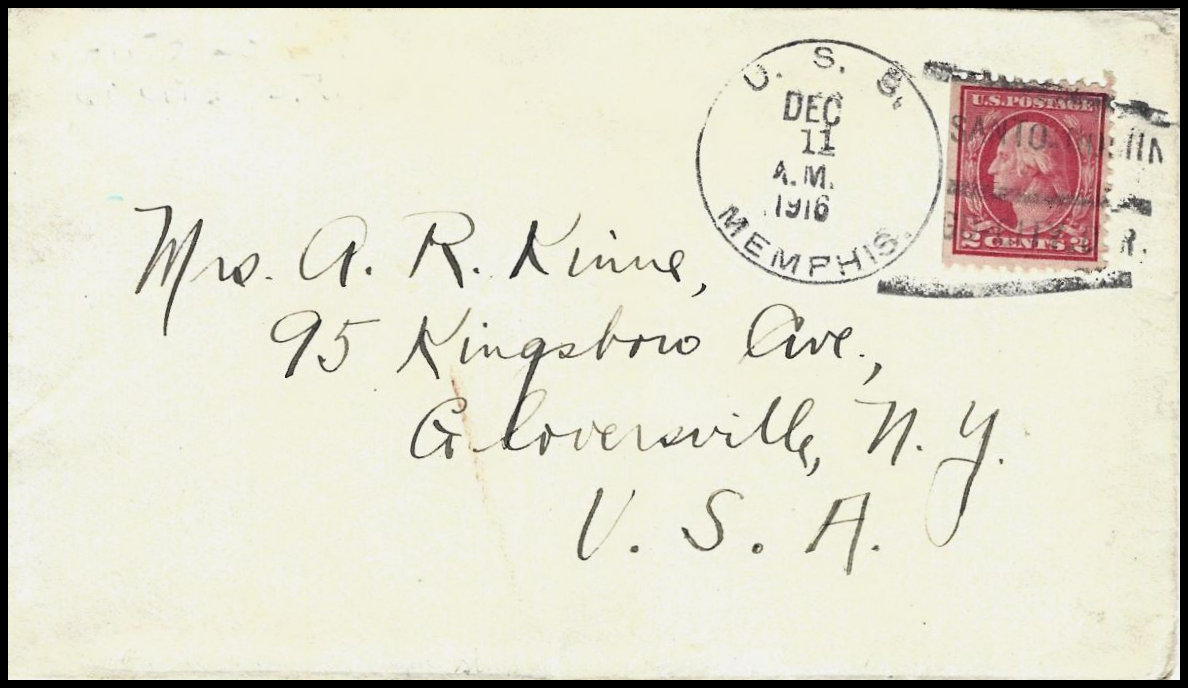 U. S. S.
DEC
11
A.M.
1916
MEMPHIS.
U.S. POSTAGE
SANTO
2 CENTS 2
R.
Mrs. A. R. Kinne,
95 Kingsboro Ave.,
Gloversville, N. Y.
U. S. A.